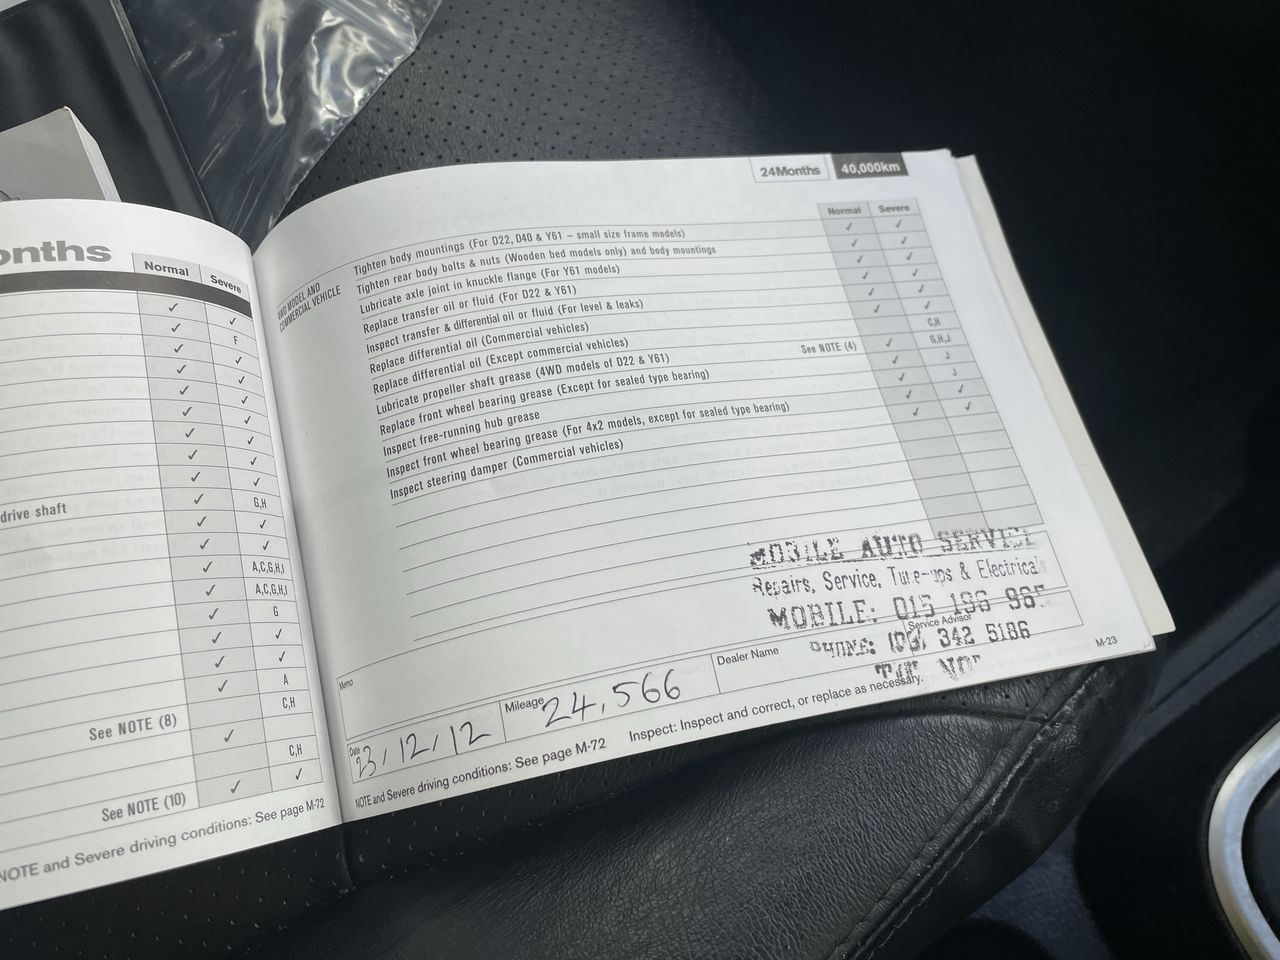 onths
Normal
Severe
✓ ✓
✓ F
✓ ✓
✓ ✓
✓ ✓
✓ ✓
✓ ✓
✓ ✓
✓ ✓
drive shaft ✓ G,H
✓ ✓
✓ ✓
✓ A,C,G,H,I
✓ A,C,G,H,I
✓ G
✓ ✓
✓ ✓
✓ A
C,H
See NOTE (8) ✓
C,H
See NOTE (10) ✓ ✓
NOTE and Severe driving conditions: See page M-72
24Months
40,000km
Normal
Severe
4WD MODEL AND
COMMERCIAL VEHICLE
Tighten body mountings (For D22, D40 & Y61 – small size frame models) ✓ ✓
Tighten rear body bolts & nuts (Wooden bed models only) and body mountings ✓ ✓
Lubricate axle joint in knuckle flange (For Y61 models) ✓ ✓
Replace transfer oil or fluid (For D22 & Y61) ✓ ✓
Inspect transfer & differential oil or fluid (For level & leaks) ✓ ✓
Replace differential oil (Commercial vehicles) ✓ ✓
Replace differential oil (Except commercial vehicles) C,H
Lubricate propeller shaft grease (4WD models of D22 & Y61) See NOTE (4) ✓ G,H,J
Replace front wheel bearing grease (Except for sealed type bearing) ✓ J
Inspect free-running hub grease ✓ J
Inspect front wheel bearing grease (For 4x2 models, except for sealed type bearing) ✓ ✓
Inspect steering damper (Commercial vehicles) ✓ ✓
MOBILE AUTO SERVICE
Repairs, Service, Tune-ups & Electrical
MOBILE: 015 196
PHONE: 342 5186
Memo
Date
23/12/12
Mileage
24,566
Dealer Name
Service Advisor
NOTE and Severe driving conditions: See page M-72 Inspect: Inspect and correct, or replace as necessary.
M-23